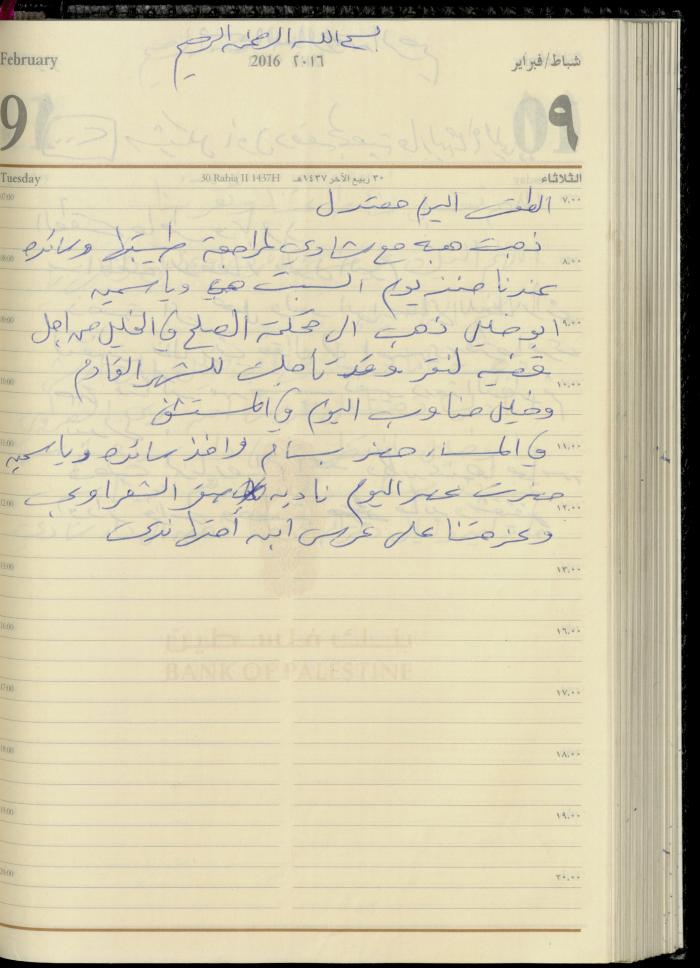 بسم الله الرحمن الرحيم
February 2016 ٢٠١٦ شباط/فبراير
9 ٩
Tuesday 30 Rabia II 1437H ٣٠ ربيع الآخر ١٤٣٧هـ الثلاثاء
07:00 ٧.٠٠
الطقس اليوم معتدل
ذهبت هبه مع شادي لمراجعة طبيبتها وسائده
08:00 ٨.٠٠
عندنا منذ يوم السبت هي وياسميه
09:00 ٩.٠٠
ابو خليل ذهب الى محكمة الصلح في الخليل من اجل
قضيه لنفر وقد تأجلت للشهر القادم
10:00 ١٠.٠٠
وخليل مناوب اليوم في المستشفى
11:00 ١١.٠٠
في المساء حضر بسام واخذ سائده وياسميه
حضرت عصر اليوم ناديه الشعراوي
12:00 ١٢.٠٠
وعزمتنا على عرس ابنه أختها ندى
13:00 ١٣.٠٠
16:00 ١٦.٠٠
بنك فلسطين
BANK OF PALESTINE
17:00 ١٧.٠٠
18:00 ١٨.٠٠
19:00 ١٩.٠٠
20:00 ٢٠.٠٠